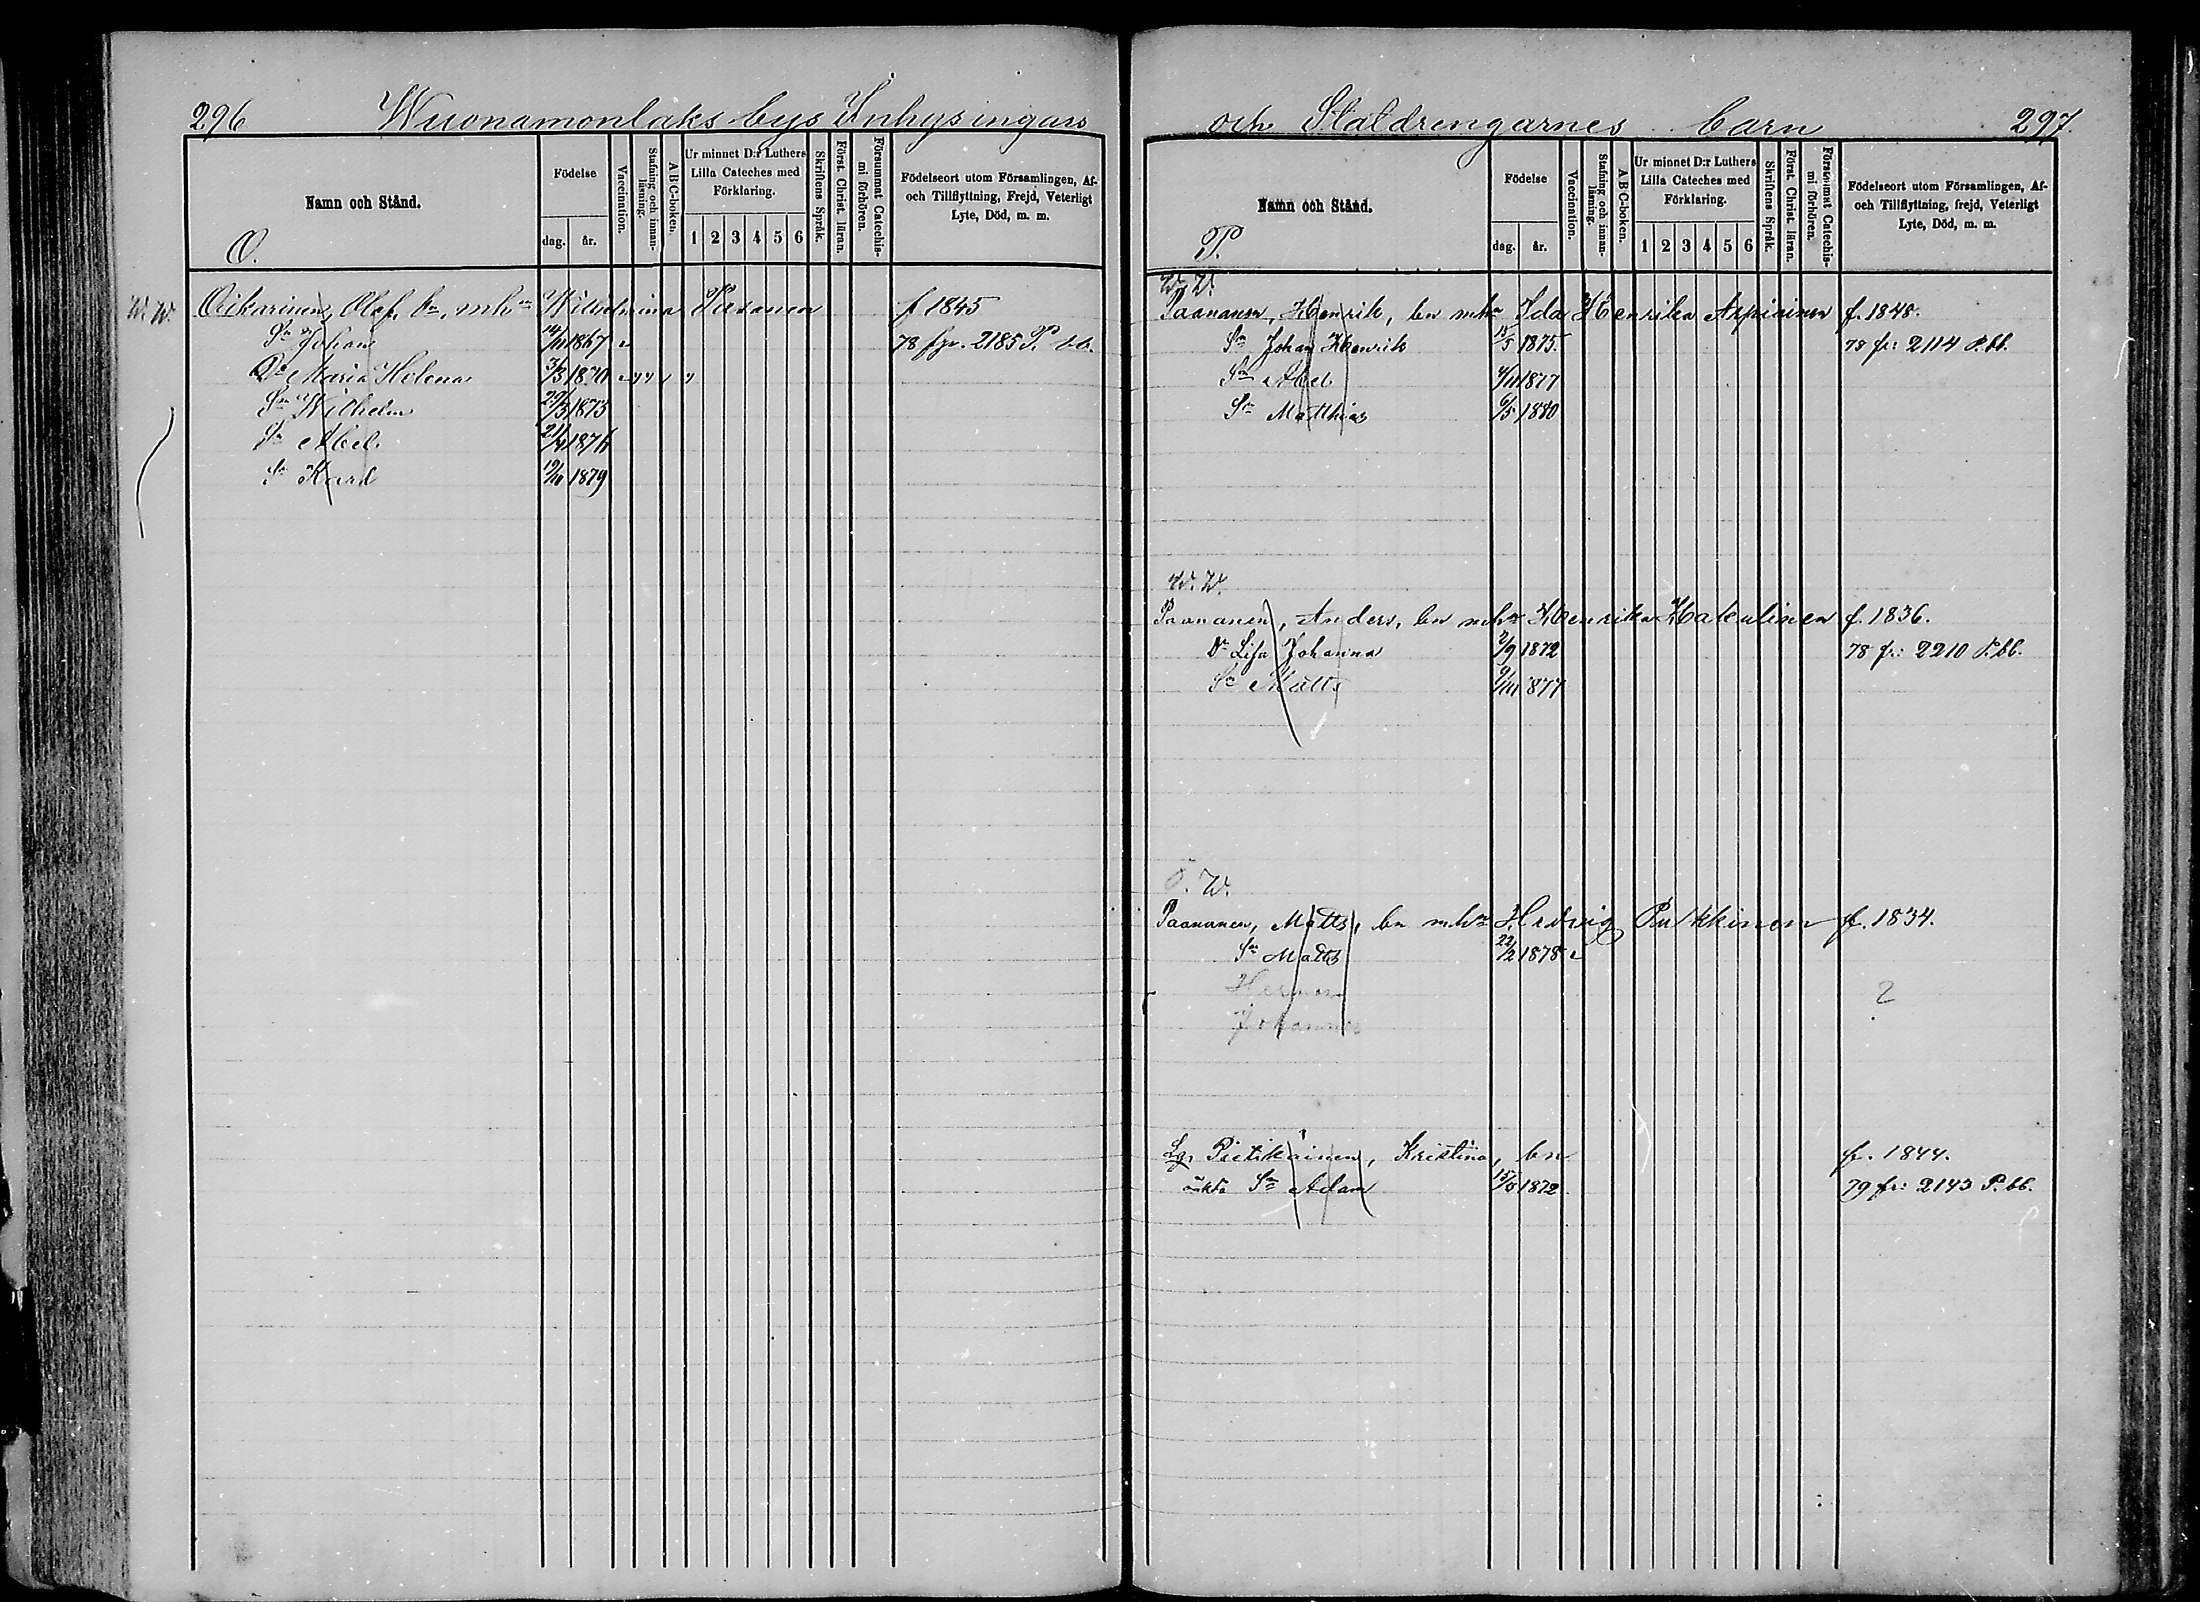 296 Wuonamonlaks bys Inhysingars
Namn och Stånd.
Födelse
dag. år.
Vaccination.
Stafning och innan-
läsning.
A B C-boken.
Ur minnet D:r Luthers
Lilla Cateches med
Förklaring.
1 2 3 4 5 6
Skriftens Språk.
Först. Christ. läran.
Försummat Catechis-
mi förhören.
Födelseort utom Församlingen, Af-
och Tillflyttning, Frejd, Veterligt
Lyte, Död, m. m.
O.
W. W. Oikarinen, Olof, bn, mhu Wilhelmina f 1845
Sn Johan 14/11 1867 78 fr. 2185 P. bb.
Dr Maria Helena 3/3 1870
Sn Wilhelm 29/3 1873
Sn Abel 21/4 1876
Sn Karl 19/10 1879
och Staldrengarnes barn 297.
Namn och Stånd.
Födelse
dag. år.
Vaccination.
Stafning och innan-
läsning.
A B C-boken.
Ur minnet D:r Luthers
Lilla Cateches med
Förklaring.
1 2 3 4 5 6
Skriftens Språk.
Först. Christ. läran.
Försummat Catechis-
mi förhören.
Födelseort utom Församlingen, Af-
och Tillflyttning, frejd, Veterligt
Lyte, Död, m. m.
P.
W. W.
Paananen, Henrik, bn mhu Ida Henrika Appiainen f. 1848.
Sn Johan Henrik 15/5 1875. 78 fr: 2114 P. bb.
Sn Abel 4/11 1877
Sn Matthias 6/5 1880
W. W.
Paananen, Anders, bn mhu Henrika Hakulinen f. 1836.
Dr Lisa Johanna 2/9 1872 78 fr: 2210 P. bb.
Sn Matts 9/11 1877
Ö. W.
Paananen, Matts, bn mhu Hedvig Pulkkinen f. 1834.
Sn Matts 22/2 1878
Herman ?
Johannes
Lg. Pietikäinen, Kristina, bn f. 1844.
oäkta Sn Adam 1872 79 fr: 2143 P. bb.